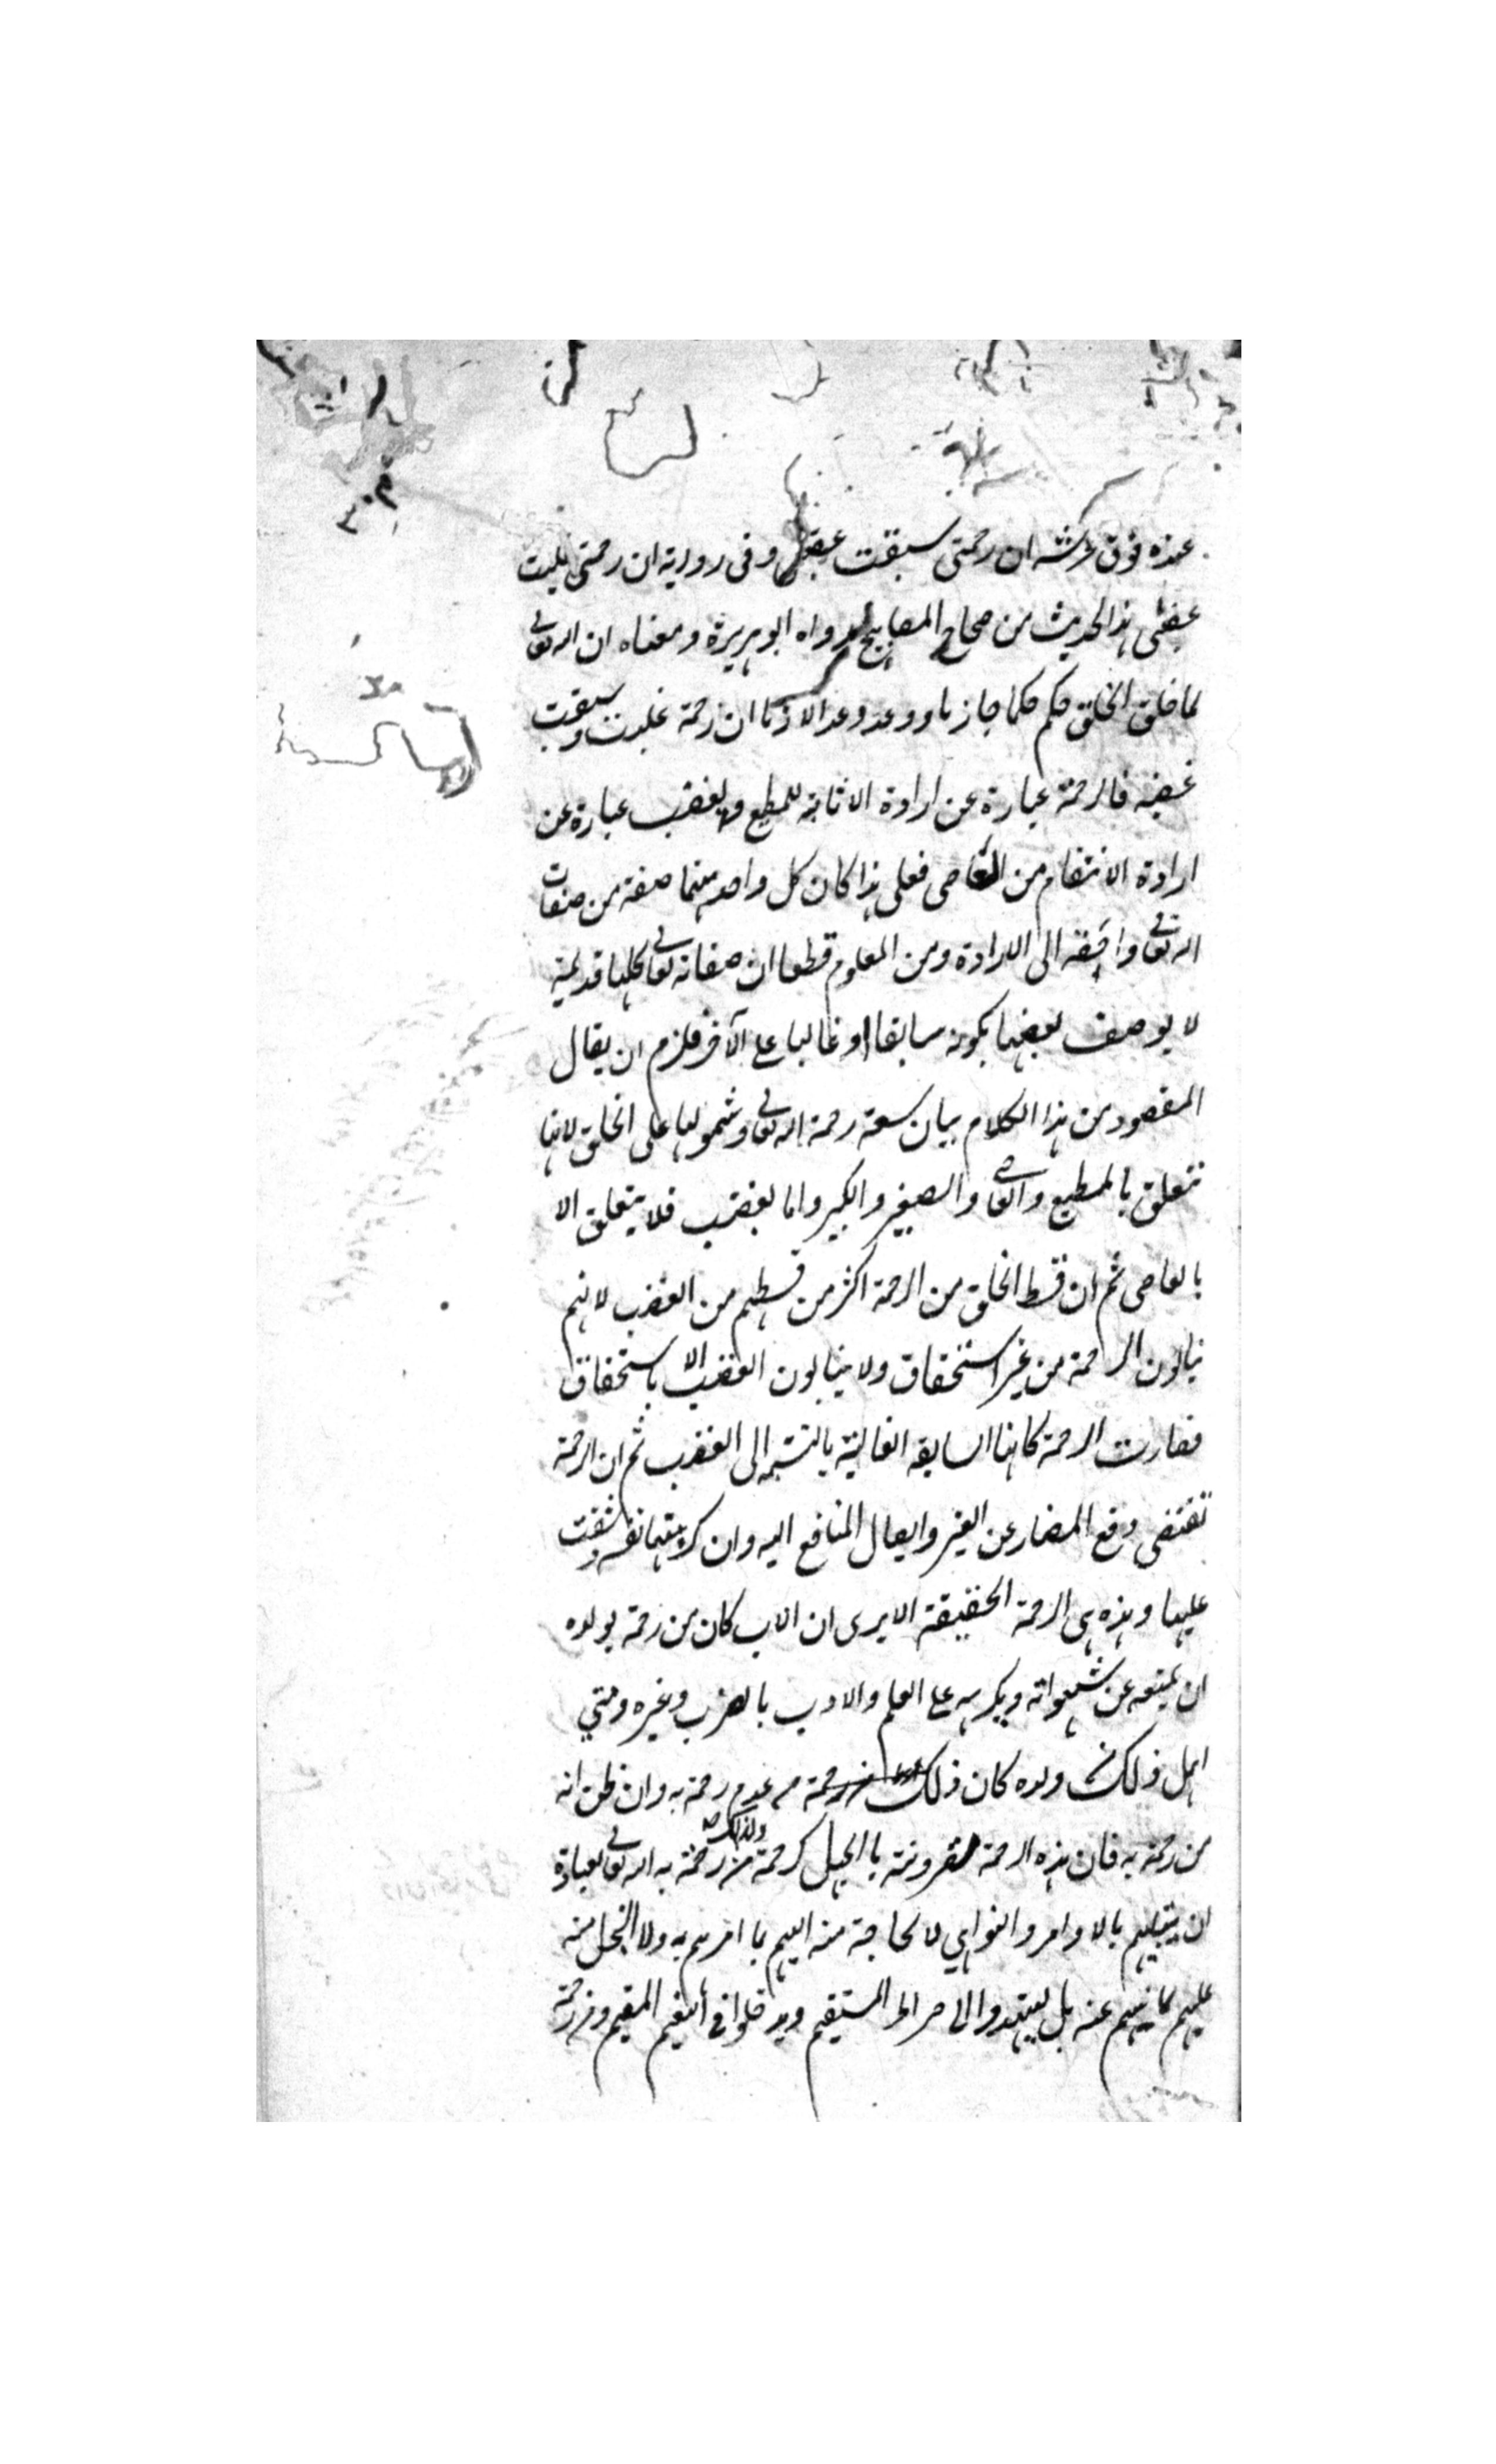 عنده فوق عرشه ان رحمتى سبقت غضبى وفى رواية ان رحمتى غلبت
غضبى هذا الحديث من صحاح المصابيح رواه ابو هريرة ومعناه ان الله تعالى
لما خلق الخلق حكم حكما جازما ووعد وعدا لازما ان رحمته غلبت وسبقت
غضبه فالرحمة عبارة عن ارادة الاثابة للمطيع والغضب عبارة عن
ارادة الانتقام من العاصى فعلى هذا كان كل واحد منهما صفة من صفات
الله تعالى راجعة الى الارادة ومن المعلوم قطعا ان صفاته تعالى كلها قديمة
لا يوصف بعضها بكونه سابقا او غالبا على الآخر فلزم ان يقال
المقصود من هذا الكلام بيان سعة رحمة الله تعالى وشمولها على الخلق لانها
تتعلق بالمطيع والعاصى والصغير والكبير واما الغضب فلا يتعلق الا
بالعاصى ثم ان قسط الخلق من الرحمة اكثر من قسطهم من الغضب لانهم
ينالون الرحمة من غير استحقاق ولا ينالون الغضب الا باستحقاق
فصارت الرحمة كانها السابقة الغالبة بالنسبة الى الغضب ثم ان الرحمة
تقتضى دفع المضار عن الغير وايصال المنافع اليه وان كرهتها نفسه وشقت
عليها وهذه هى الرحمة الحقيقة الا يرى ان الاب كان من رحمته بولده
ان يمنعه عن شهواته ويكرهه على العلم والادب بالضرب وغيره ومتى
اهمل ذلك فى ولده كان ذلك من عدم رحمته به وان ظن انه
من رحمته به فان هذه الرحمة مقرونة بالجهل ولذلك كان من رحمة الله تعالى لعباده
ان يبتليهم بالاوامر والنواهى لا لحاجة منه اليهم بما امرهم به ولا البخل منه
عليهم بما نهيهم عنه بل ليهتدوا الى صراط المستقيم ويدخلوا فى النعيم المقيم ومن رحمته